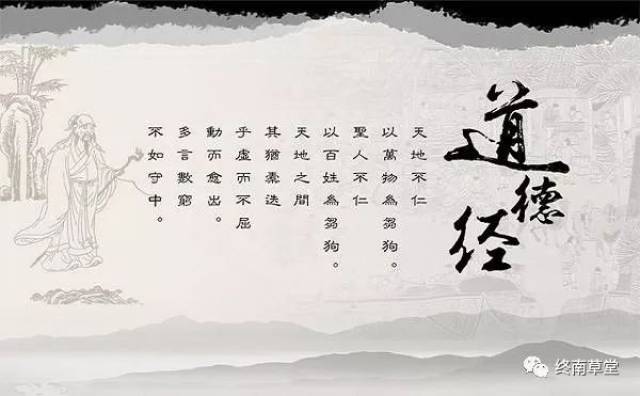 道德经
天地不仁
以萬物為芻狗。
聖人不仁
以百姓為芻狗。
天地之間
其猶素迭
乎虛而不屈
動而愈出。
多言數窮
不如守中。
终南草堂